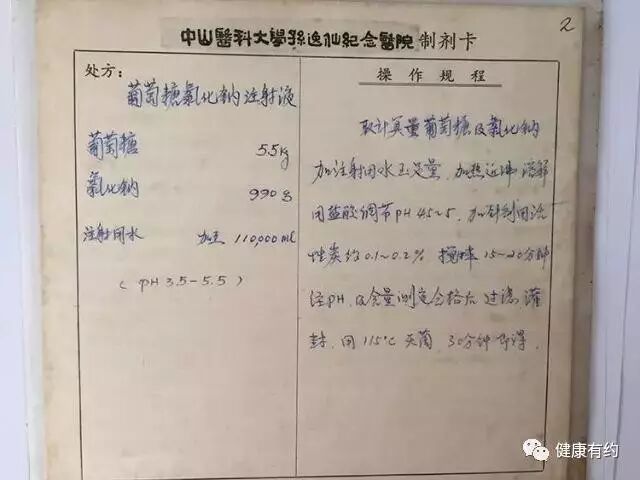 2
中山醫科大學孫逸仙紀念醫院 制剂卡
处方：
葡萄糖氯化钠注射液
葡萄糖 5.5kg
氯化钠 990g
注射用水 加至 110,000ml
(pH 3.5-5.5)
操作规程
取计算量葡萄糖及氯化钠
加注射用水至足量，加热近沸溶解
用盐酸调节pH 4.5~5，加针剂用活
性炭约0.1~0.2% 搅拌 15~20分钟
经pH，及含量测定合格后 过滤 灌
封，用115℃灭菌 30分钟即得.
健康有约